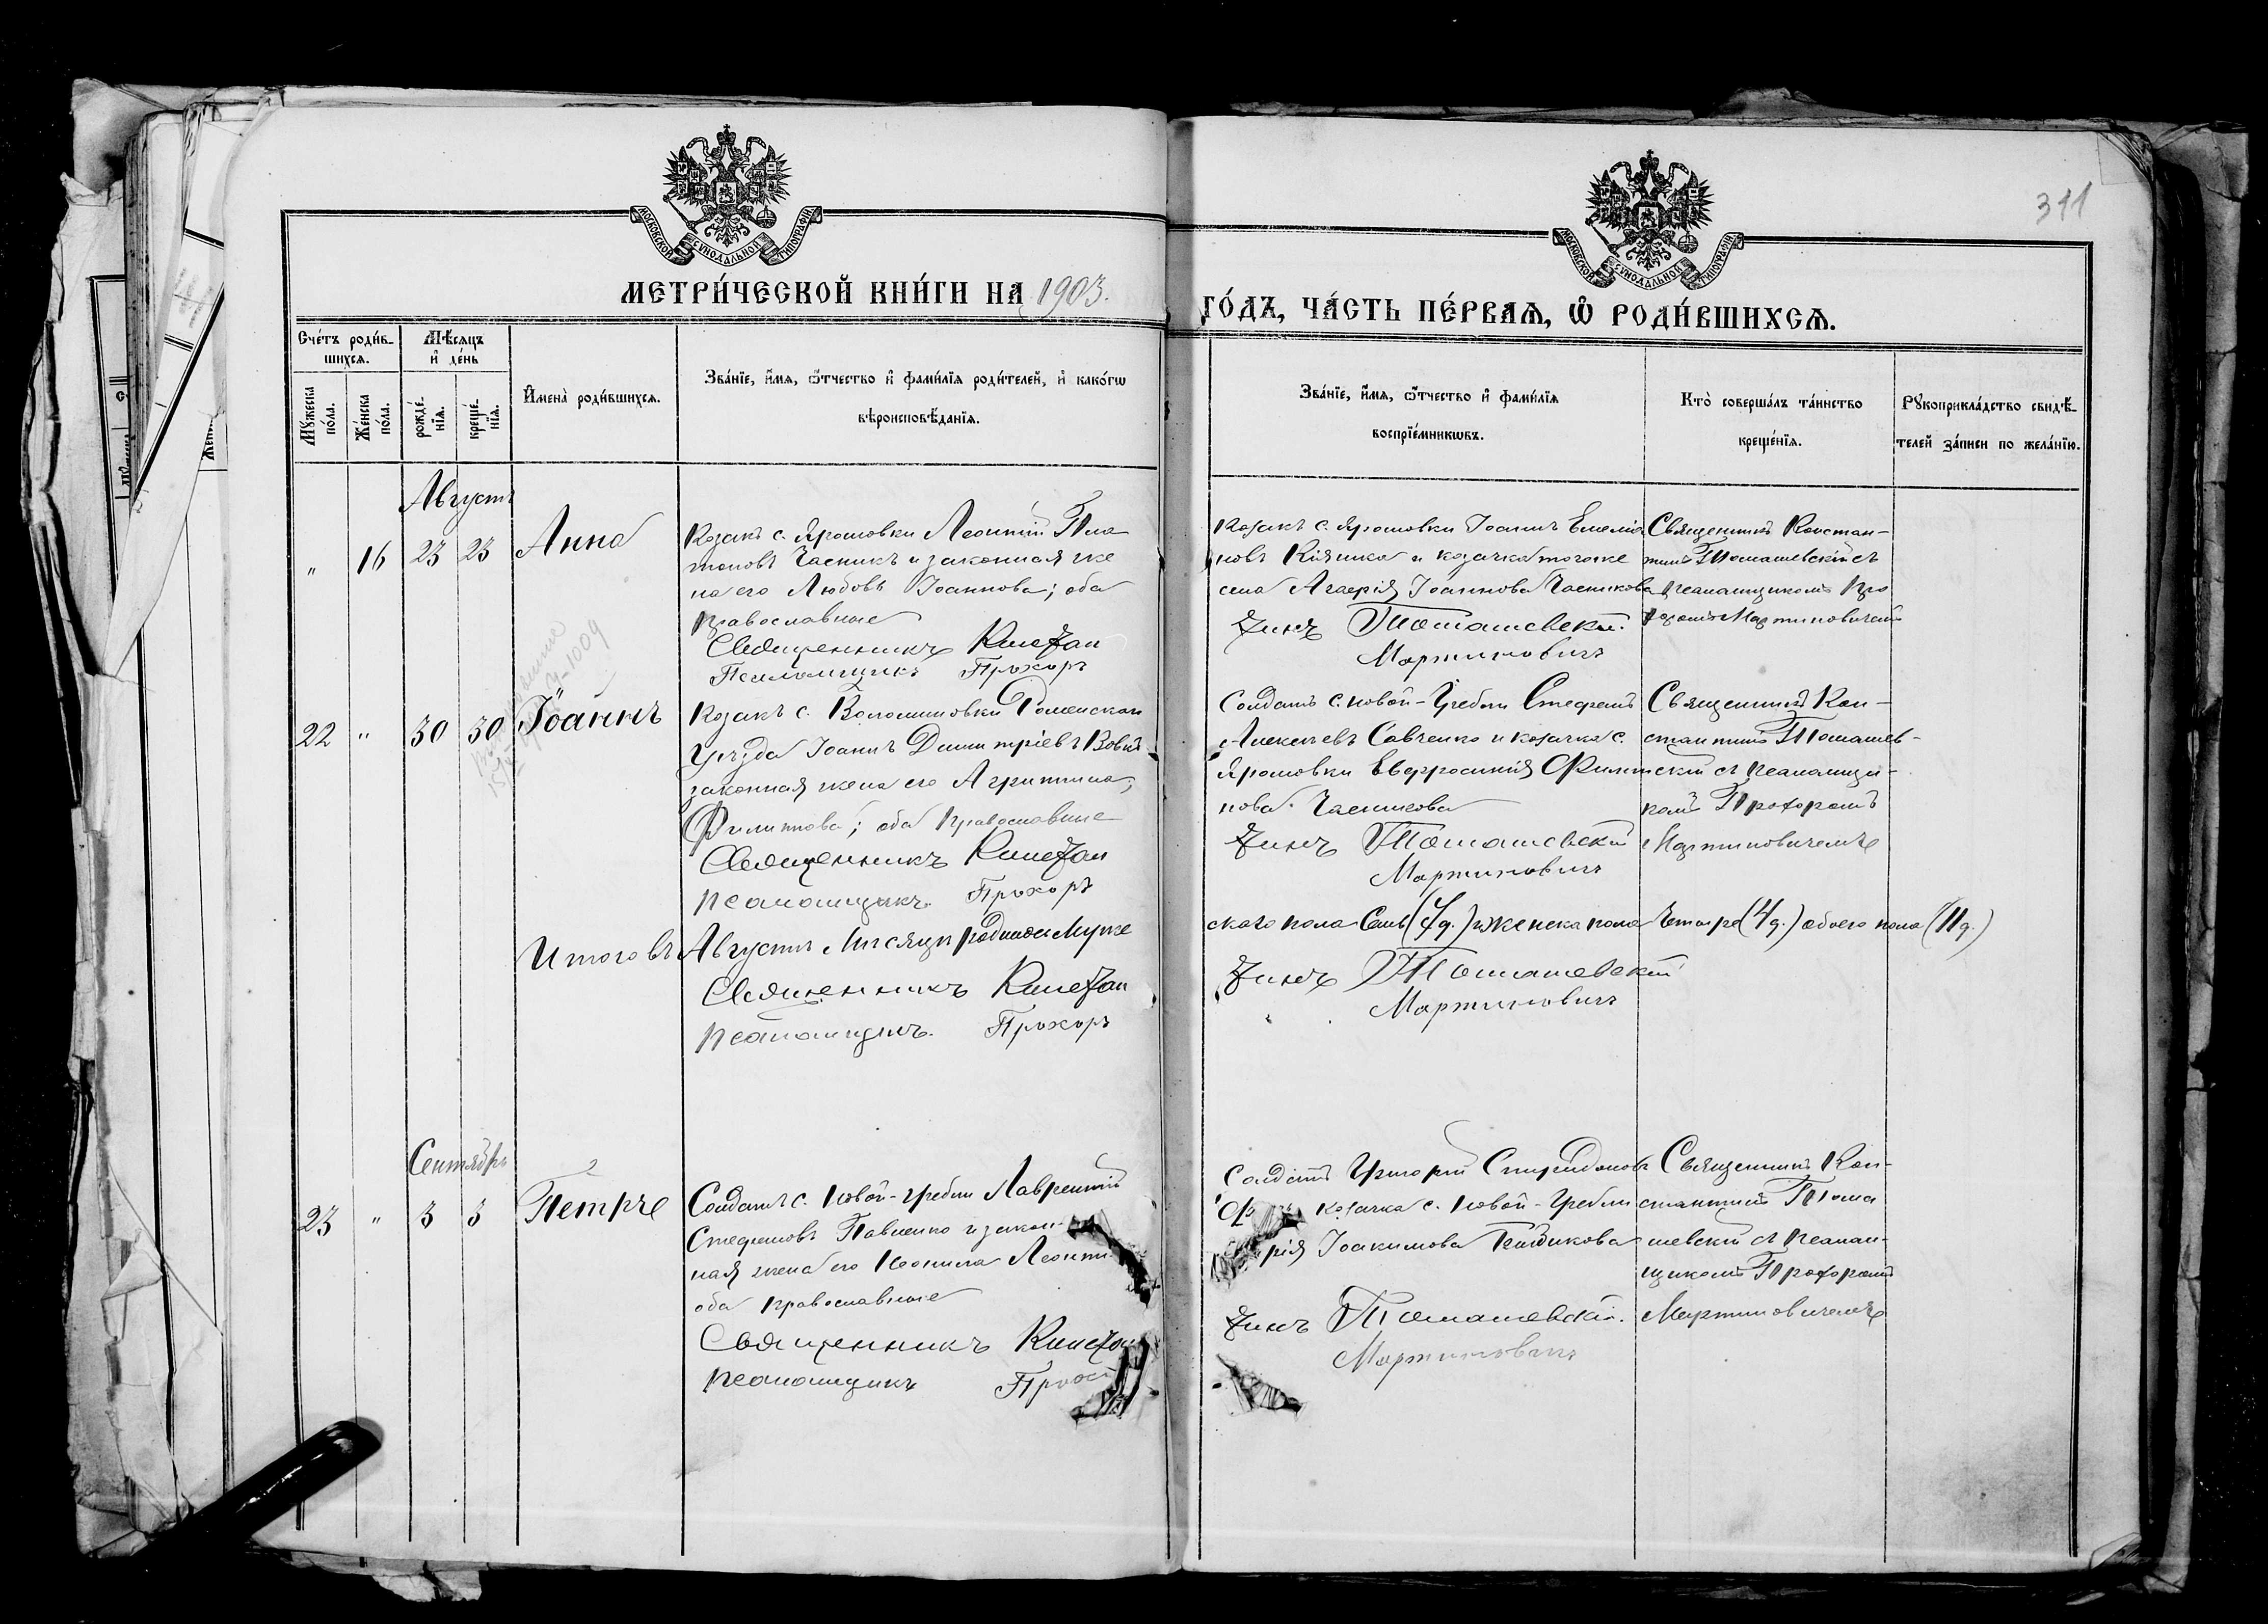 311
МОСКОВСКОЙ СУНОДАЛЬНОЙ ТИПОГРАФІИ
МОСКОВСКОЙ СУНОДАЛЬНОЙ ТИПОГРАФІИ
МЕТРИ́ЧЕСКОЙ КНИ́ГИ НА 1903.
ГО́ДЪ, ЧА́СТЬ ПЕ́РВАѦ, Ѡ҆ РОДИ́ВШИХСѦ.
Сче́тъ роди́в-
шихсѧ.
Мѣ́сѧцъ
и҆ де́нь
Мꙋ́жеска
по́ла.
Же́нска
по́ла.
рожде́-
нїѧ.
креще́-
нїѧ.
И҆мена̀ роди́вшихсѧ.
Зва́нїе, и҆́мѧ, ѻ҆́тчество и҆ фами́лїѧ роди́телей, и҆ како́гѡ
вѣроисповѣ́данїѧ.
Зва́нїе, и҆́мѧ, ѻ҆́тчество и҆ фами́лїѧ
воспрїе́мникѡвъ.
Кто̀ соверша́лъ та́инство
креще́нїѧ.
Рꙋкоприкла́дство свидѣ́-
телей за́писи по жела́нїю.
Августъ
" 16 23 23 Анна
Козакъ с. Ярошовки Леонтій Пла
тоновъ Часникъ и законная же
на его Любовь Іоаннова; оба
православные
Священникъ Констан
Псаломщикъ Прохоръ
Козакъ с. Ярошовки Іоаннъ Емелiа
новъ Кіяшко и козачка тогоже
села Агаѳія Іоаннова Часникова
тинъ Томашевскій.
Мартиновичъ
Священникъ Констан-
тинъ Томашевскій съ
псаломщикомъ Про
хоромъ Мартиновичемъ
22 " 30 30 Іоаннъ
Козакъ с. Волошиновки Роменскаго
Уѣзда Іоаннъ Димитріевъ Вовкъ
законная жена его Агриппина
Филиппова; оба православные
Священникъ Констан
псаломщикъ Прохоръ
Солдатъ с. Новой-Гребли Стефанъ
Алексѣевъ Савченко и козачка с.
Ярошовки Евфросинія Филип
пова Часникова
тинъ Томашевскій
Мартиновичъ
Священникъ Кон-
стантинъ Томашев-
скій съ псаломщи-
комъ Прохоромъ
Мартиновичемъ
Итого въ Августѣ мѣсяцѣ родилось муже
ского пола Семь (7 д.) и женска пола Четыре (4 д.) обоего пола (11 д.)
Священникъ Констан
псаломщикъ. Прохоръ
тинъ Томашевскій
Мартиновичъ
Сентябрь
23 " 3 3 Петръ
Солдатъ с. Новой-Гребли Лаврентій
Стефановъ Павленко и закон-
ная жена его Неонила Леонти
оба православные
Священникъ Констан
псаломщикъ Прохо
Солдатъ Григорій Спиридоновъ
козачка с. Новой-Гребли
рія Іоакимова
тинъ Томашевскій.
Мартиновичъ
Священникъ Кон-
стантинъ Тома
шевскій съ псалом-
щикомъ Прохоромъ
Мартиновичемъ